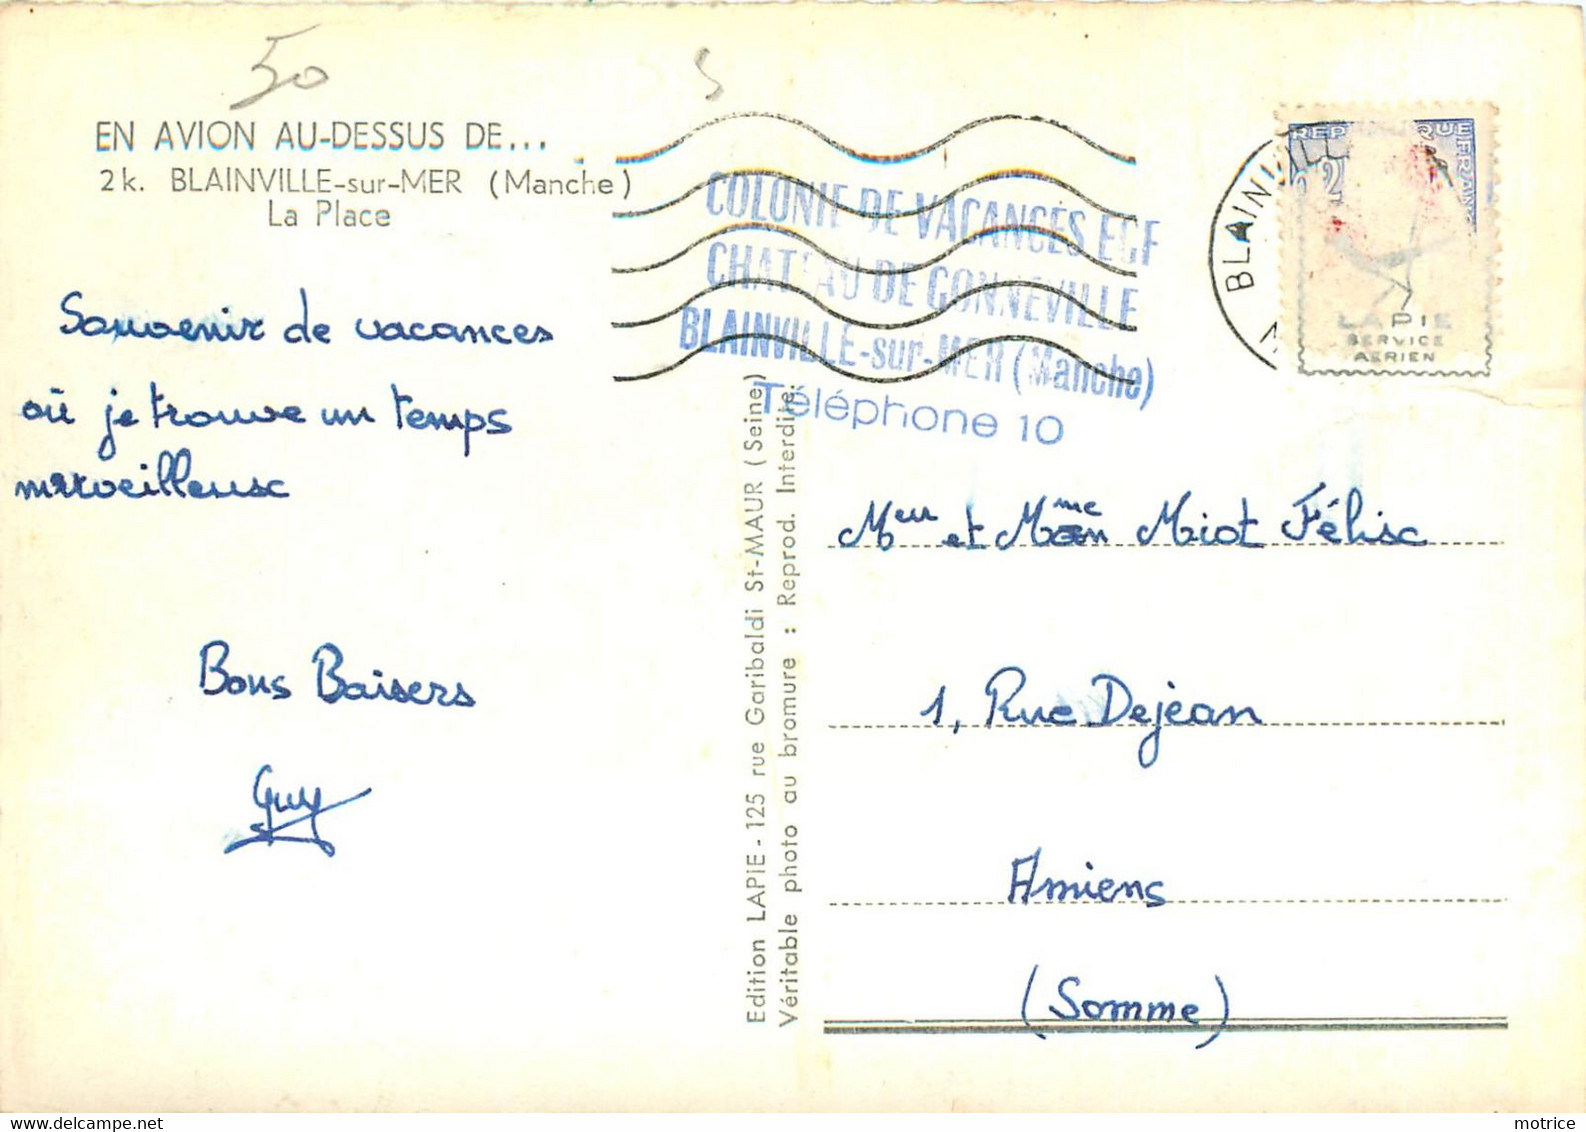 50
S
EN AVION AU-DESSUS DE...
2k. BLAINVILLE-sur-MER (Manche)
La Place
Souvenir de vacances
où je trouve un temps
merveilleuse
Bons Baisers
Guy
COLONIE DE VACANCES EGF
CHATEAU DE GONNEVILLE
BLAINVILLE-sur-MER (Manche)
Téléphone 10
Edition LAPIE - 125 rue Garibaldi St-MAUR (Seine)
Véritable photo au bromure : Reprod. Interdite.
BLAINVILLE
LAPIE
SERVICE
AERIEN
Meur et Mme Miot Félise
1, Rue Dejean
Amiens
(Somme)
motrice